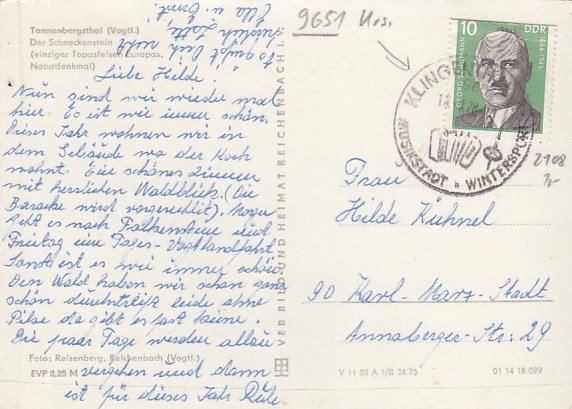 Tannenbergsthal (Vogtl.)
Der Schneckenstein
(einziger Topasfelsen Europas,
Naturdenkmal)
Liebe Hilde!
Nun sind wir wieder mal
hier. Es ist wie immer schön,
Dieses Jahr wohnen wir in
dem Gebäude wo der Koch
wohnt. Ein schönes Zimmer
mit herrlichen Waldblick. (Die
Baracke wird vorgerichtet). Morgen
geht es nach Falkenstein und
Freitag eine Tages-Vogtlandfahrt
Sonst ist es wie immer schön.
Den Wald haben wir schon ganz
schön durchstreift leider ohne
Pilse da gibt es fast keine.
Die paar Tage werden allzu
Foto: Reisenberg, Reichenbach (Vogtl.)
vergehen und dann
EVP 0,25 M
ist für dieses Jahr Ruhe
Ella u. Ernst
VEB BILD UND HEIMAT REICHENBACH i. V.
9651 Urs.
10 DDR
GEORG SCHUMANN
1886-1945
KLINGENTHAL
MUSIKSTADT WINTERSPORT
2108
Frau
Hilde Kühnel
90 Karl-Marx-Stadt
Annaberger-Str: 29
V 11 50 A 1/B 34/75
01 14 18 099